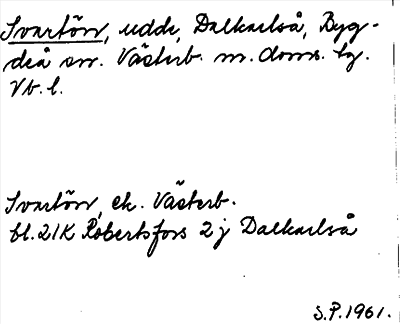 Svartörr, udde, Dalkarlså, Byg-
deå sn. Västerb. m. doms. lg.
Vb. l.
Svartörr, ek. Västerb.
bl. 21K Robertsfors 2 j Dalkarlså
S.P. 1961.